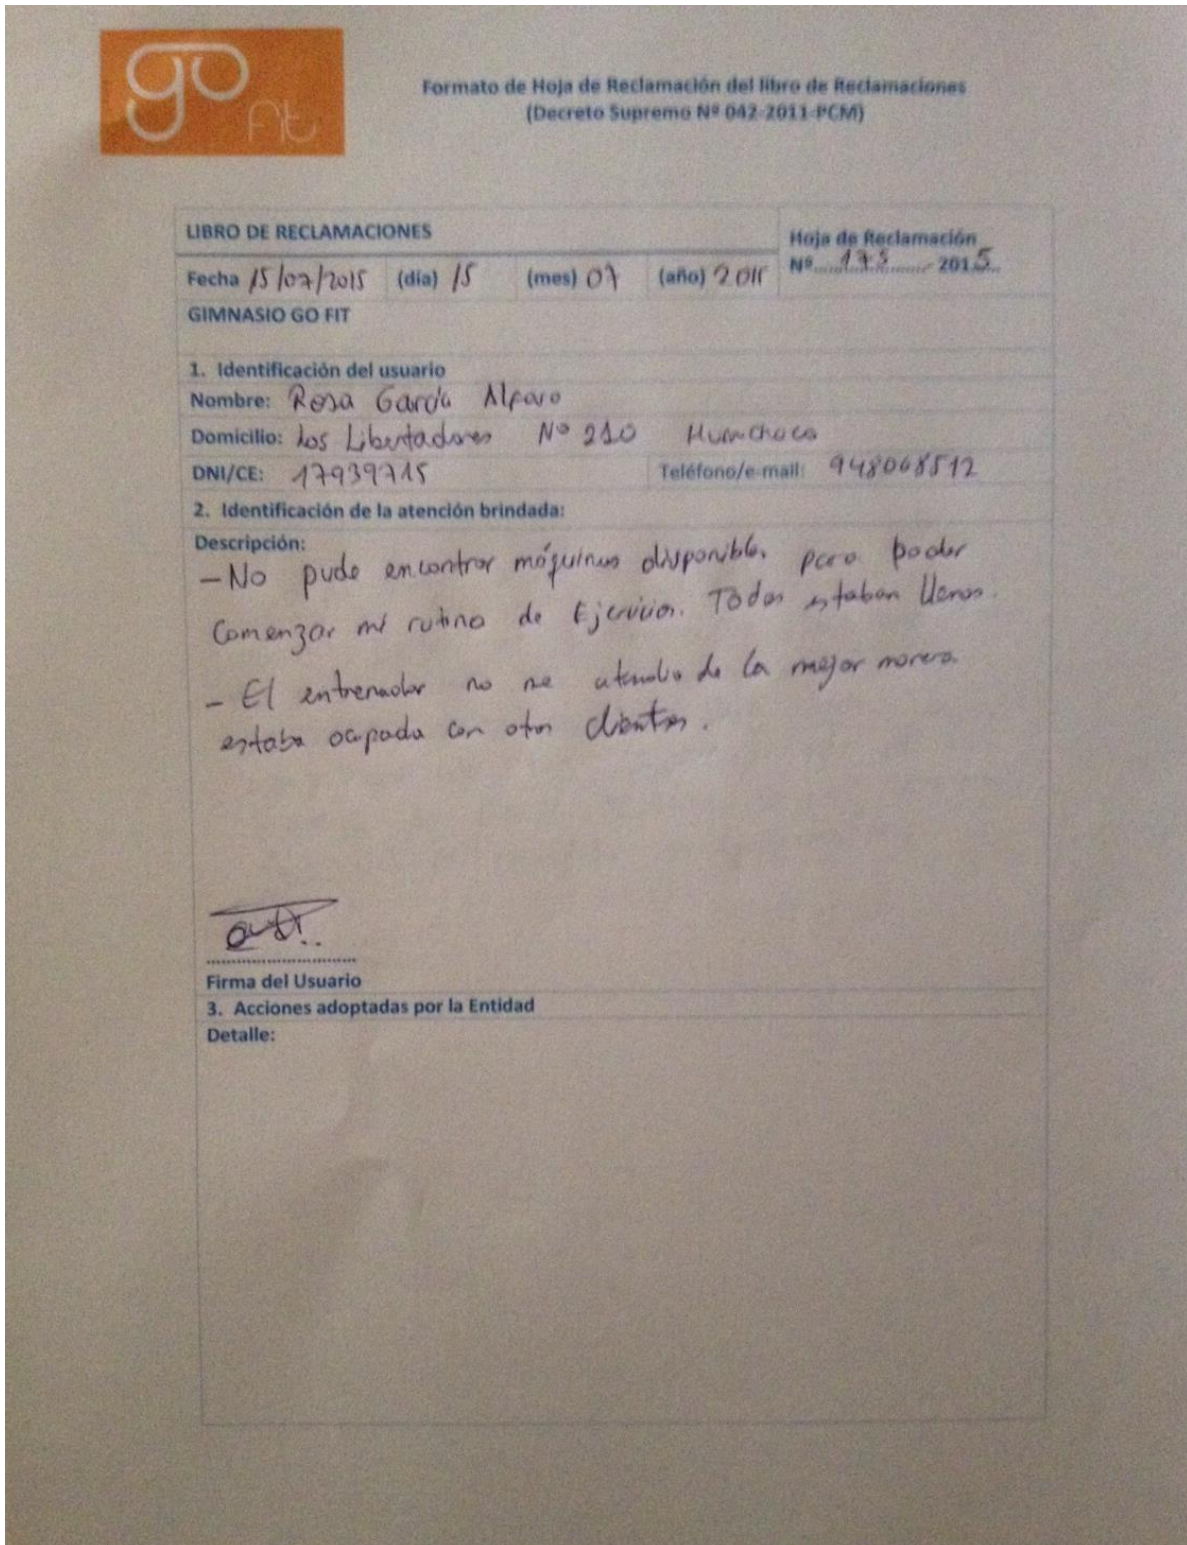 go
Fit
Formato de Hoja de Reclamación del libro de Reclamaciones
(Decreto Supremo Nº 042-2011-PCM)
LIBRO DE RECLAMACIONES
Hoja de Reclamación
Nº 175 - 2015
Fecha 15/07/2015 (día) 15 (mes) 07 (año) 2015
GIMNASIO GO FIT
1. Identificación del usuario
Nombre: Rosa García Alfaro
Domicilio: Los Libertadores Nº 210
DNI/CE: 17939715 Teléfono/e-mail: 948068512
2. Identificación de la atención brindada:
Descripción:
- No pude encontrar máquinas disponibles para poder
comenzar mi rutina de Ejercicios. Todas estaban llenas.
- El entrenador no me atendio de la mejor manera.
estaba ocupada con otros clientes.
Firma del Usuario
3. Acciones adoptadas por la Entidad
Detalle: